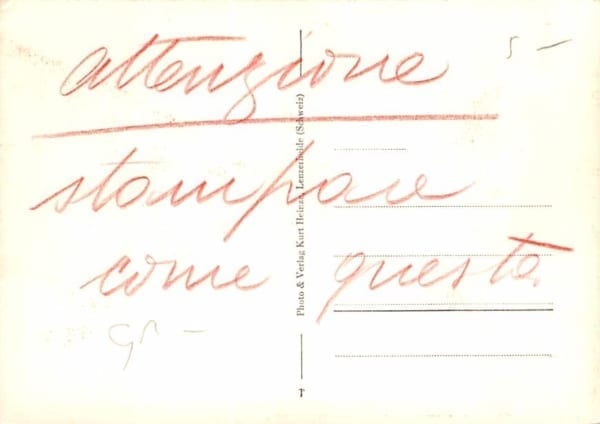 attenzione
stampare
come questa
5 –
Photo & Verlag Kurt Heinz, Lenzerheide (Schweiz)